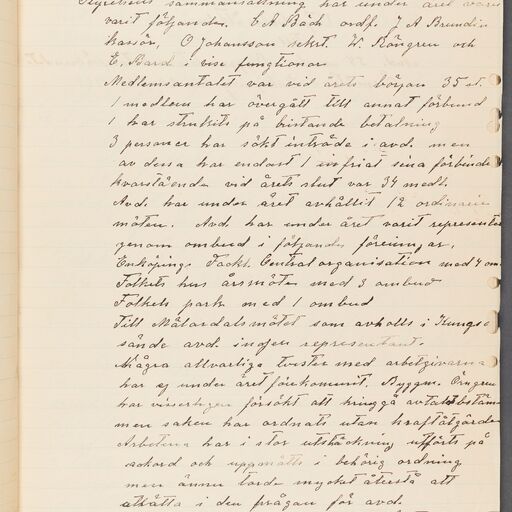 Styrelsens sammansättning har under året varit
varit följande. C A Bäch ordf. J A Brundin
kassör, O Johansson sekrt. W. Röngren och
E. Bard i vise funktioner
Medlemsantalet var vid årets början 35 st.
1 medlem har övergått till annat förbund
1 har strukits på bristande betalning
3 personer har sökt inträde i avd. men
av dessa har endast 1 infriat sina förbinde
kvarstående vid årets slut var 34 medl.
Avd. har under året avhållit 12 ordinarie
möten. Avd har under året varit represente
genom ombud i följande föreningar,
Enköpings Fackl. Centralorganisation med 4 om
Folkets hus årsmöte med 3 ombud
Folkets park med 1 ombud
Till Mälardalsmötet som avhölls i Kungsö
sände avd. ingen representant.
Några allvarliga tvister med arbetsgivarna
har ej under året förekommit. Byggm. Öngren
har visserligen försökt att kringgå avtalsbestäm
men saken har ordnats utan kraftåtgärder
Arbetena har i stor utsträckning utförts på
ackord och uppmätts i behörig ordning
men ännu torde mycket återstå att
uträtta i den frågan för avd.